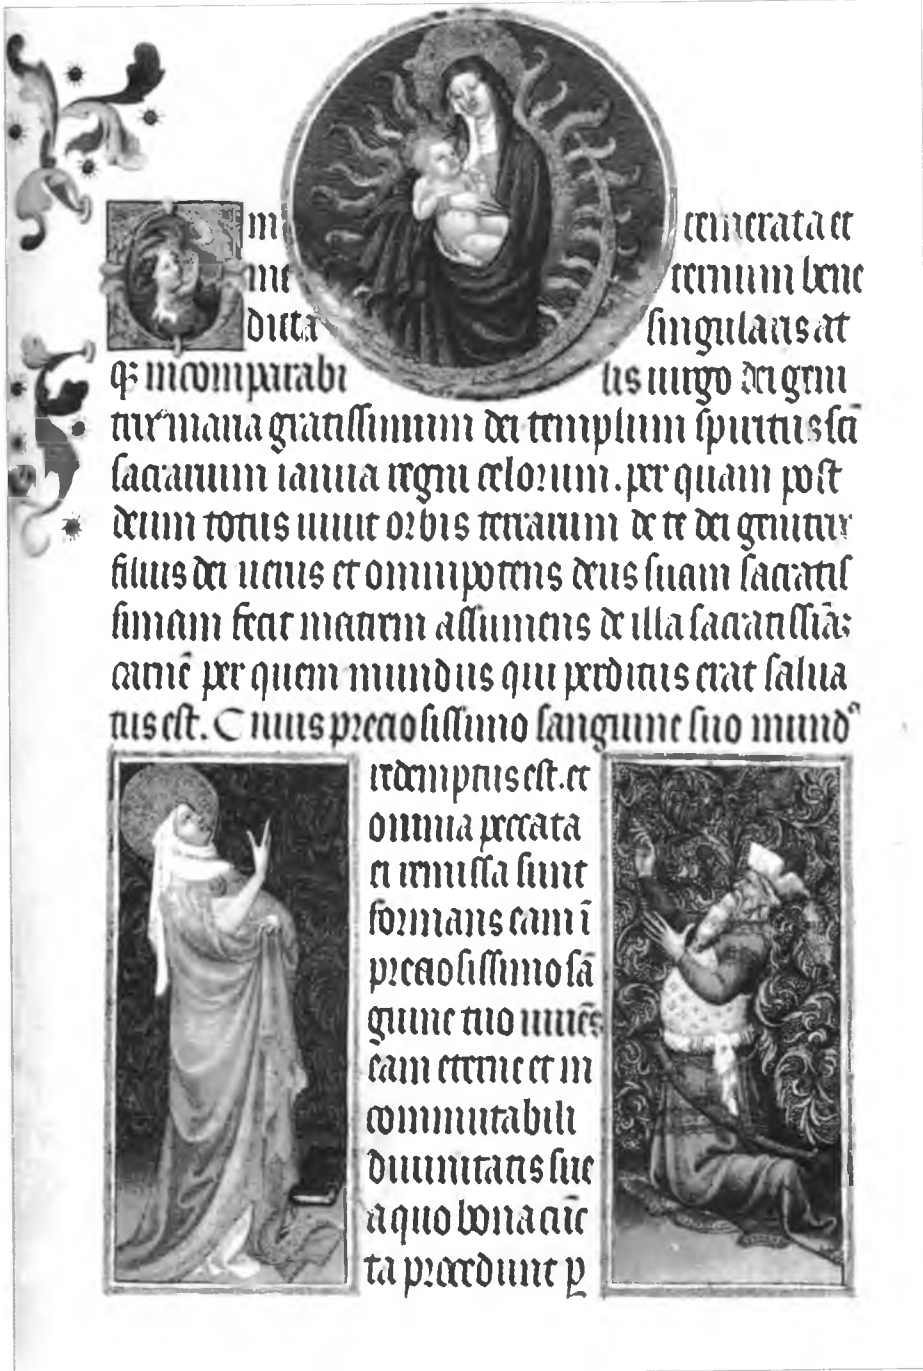 O in temerata et
ine ternum bene
dicta singularis at
q; incomparabi lis uirgo dei geni
trix maria gratissimum dei templum spiritus sc̄i
sacrarium ianua regni celorum. per quam post
deum totus uiuit orbis terrarum de te dei genitrix
filius dei uerus et omnipotens deus suam sacratis
simam fecit matrem assumens de illa sacratissiā;
carnē per quem mundus qui perditus erat salua
tus est. Cuius preciosissimo sanguine suo mundꝰ
redemptus est. et
omnia peccata
ei remissa sunt
formans eam ī
preciosissimo sā
guine tuo uniēs
eam eterne et in
commutabili
diuinitatis sue
a quo bona cūc
ta procedunt ꝑ